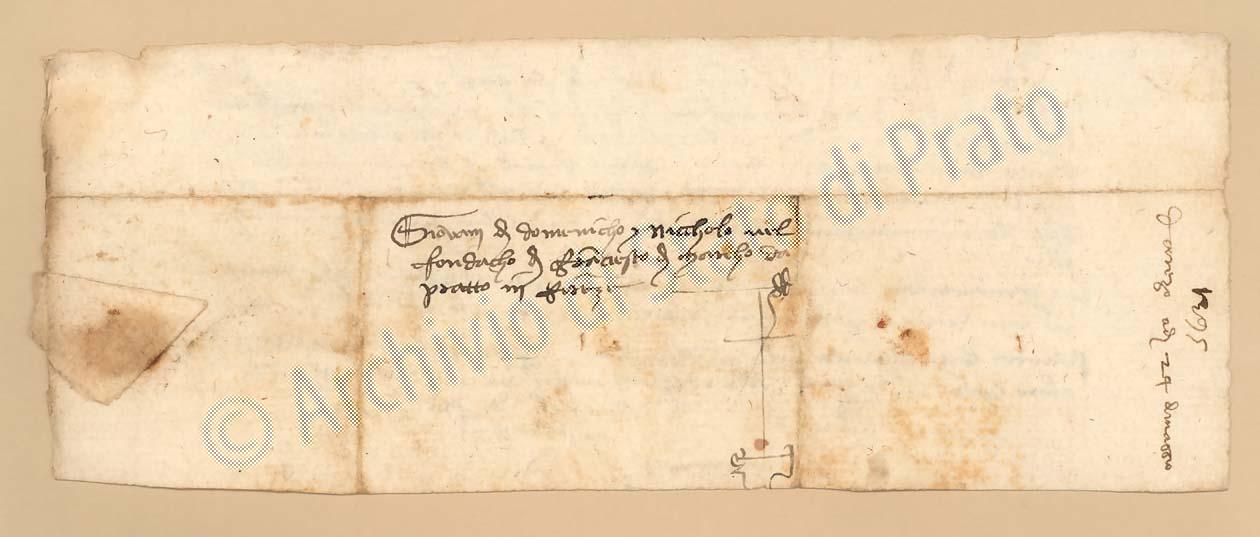 Giovani di domenicho e Nicholo nel
fondacho di Franciescho di Marcho da
pratto in Firenze
1395
adi 24 di marzo
© Archivio di Stato di Prato